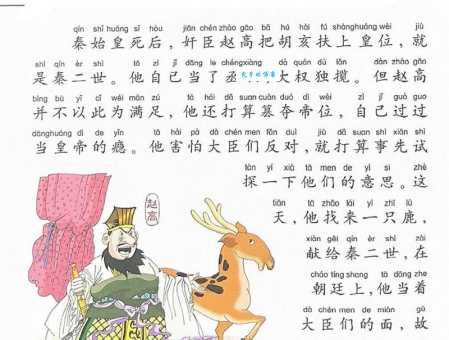 qín shǐ huáng sǐ hòu jiān chén zhào gāo bǎ hú hài fú shàng huáng wèi jiù
秦始皇死后，奸臣赵高把胡亥扶上皇位，就
shì qín èr shì tā zì jǐ dāng le chéngxiàng dà quán dú lǎn dàn zhào gāo
是秦二世。他自己当了丞，大权独揽。但赵高
bìng bù yǐ cǐ wéi mǎn zú tā hái dǎ suan cuàn duó dì wèi zì jǐ guò guo
并不以此为满足，他还打算篡夺帝位，自己过过
dānghuáng dì de yǐn tā hài pà dà chén men fǎn duì jiù dǎ suan shì xiān shì
当皇帝的瘾。他害怕大臣们反对，就打算事先试
tàn yí xià tā men de yì si zhè
探一下他们的意思。这
tiān tā zhǎo lái yì zhī lù
天，他找来一只鹿，
xiàn gěi qín èr shì zài
献给秦二世，在
cháo tíng shang tā dāng zhe
朝廷上，他当着
dà chén men de miàn gù
大臣们的面，故
赵高